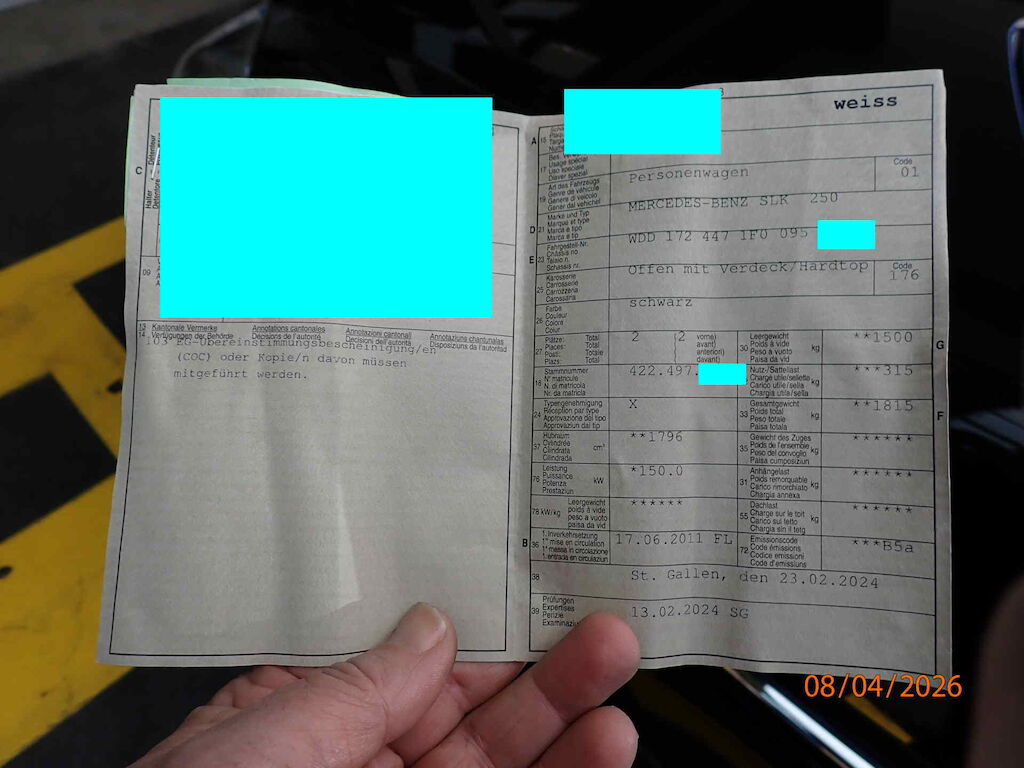 C
Halter
Détenteur
09
13 Kantonale Vermerke Annotations cantonales Annotazioni cantonali Annotaziuns chantunalas
14 Verfügungen der Behörde Décisions de l'autorité Decisioni dell'autorità Disposiziuns da l'autoritad
103 EG-Übereinstimmungsbescheinigung/en
(COC) oder Kopie/n davon müssen
mitgeführt werden.
weiss
A 15
17 Usage spécial
Uso speciale
Diever spezial
19 Art des Fahrzeugs
Genre de véhicule
Genere di veicolo
Gener dal vehichel
Personenwagen
Code
01
D 21 Marke und Typ
Marque et type
Marca e tipo
Marca e tip
MERCEDES-BENZ SLK 250
E 23 Fahrgestell-Nr.
Châssis no
Telaio n.
Schassis nr.
WDD 172 447 1F0 095
25 Karosserie
Carrosserie
Carrozzeria
Carossaria
Offen mit Verdeck/Hardtop
Code
176
26 Farbe
Couleur
Colore
Colur
schwarz
27 Plätze: Total
Places: Total
Posti: Totale
Plazs: Total
2 (2 vorne)
(avant)
(anteriori)
(davant)
30 Leergewicht
Poids à vide
Peso a vuoto
Paisa da vid
kg
**1500
G
18 Stammnummer
N° matricule
N. di matricola
Nr. da matricla
422.497.
Nutz-/Sattellast
Charge utile/sellette
Carico utile/sella
Chargia utila/sella
kg
***315
24 Typengenehmigung
Réception par type
Approvazione del tipo
Approvaziun dal tip
X
33 Gesamtgewicht
Poids total
Peso totale
Paisa totala
kg
**1815
F
37 Hubraum
Cylindrée
Cilindrata
Cilindrada
cm³
**1796
35 Gewicht des Zuges
Poids de l'ensemble
Peso del convoglio
Paisa cumposiziun
kg
******
76 Leistung
Puissance
Potenza
Prestaziun
kW
*150.0
31 Anhängelast
Poids remorquable
Carico rimorchiato
Chargia annexa
kg
******
78 kW/kg Leergewicht
poids à vide
peso a vuoto
paisa da vid
******
55 Dachlast
Charge sur le toit
Carico sul tetto
Chargia sin il tetg
kg
******
B 36 1. Inverkehrsetzung
1re mise en circulation
1a messa in circolazione
1. entrada en circulaziun
17.06.2011 FL
72 Emissionscode
Code émissions
Codice emissioni
Code d'emissiuns
***B5a
38 St. Gallen, den 23.02.2024
39 Prüfungen
Expertises
Perizie
13.02.2024 SG
08/04/2026